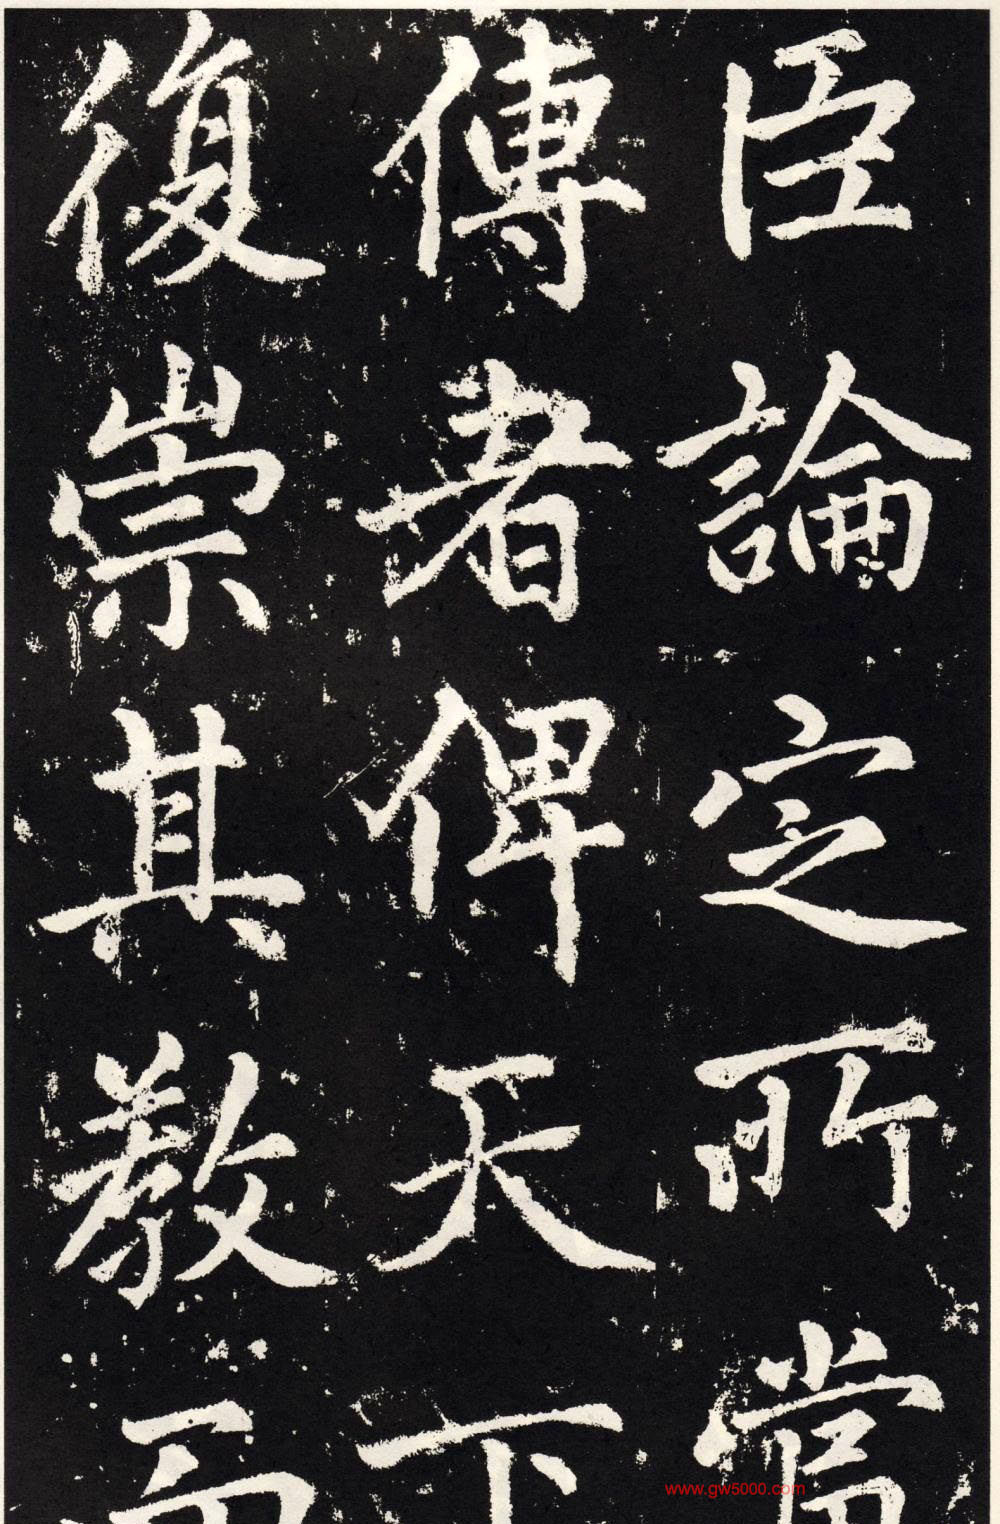 臣論定所當
傳者俾天下
復崇其教而
www.gw5000.com